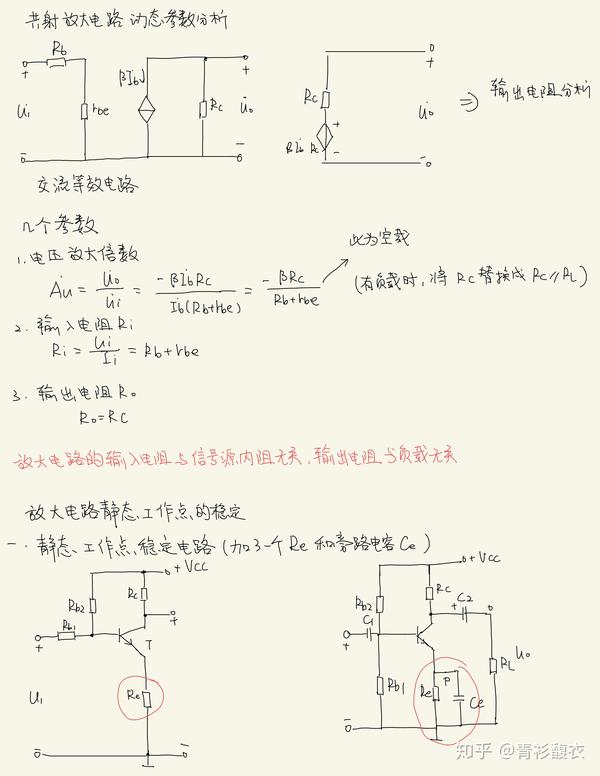 共射放大电路动态参数分析
Rb
+ + +
U̇i rbe βİb Rc U̇o Rc U̇o ⇒ 输出电阻分析
βİb Rc
+
-
- - -
交流等效电路
几个参数
1. 电压放大倍数 此为空载
Ȧu = U̇o/U̇i = -βİbRc/İb(Rb+rbe) = -βRc/Rb+rbe (有负载时,将 Rc 替换成 Rc∥RL)
2. 输入电阻 Ri
Ri = Ui/Ii = Rb+rbe
3. 输出电阻 Ro
Ro=Rc
放大电路的输入电阻与信号源内阻无关,输出电阻与负载无关
放大电路静态工作点的稳定
一. 静态工作点稳定电路(加了一个 Re 和旁路电容 Ce)
+Vcc +Vcc
Rb2 Rc Rb2 Rc C2
Rb1 T C1 +
+ + +
Rb1 Re P Ce RL Uo
Ui Re
- - -
知乎 @青衫馥衣